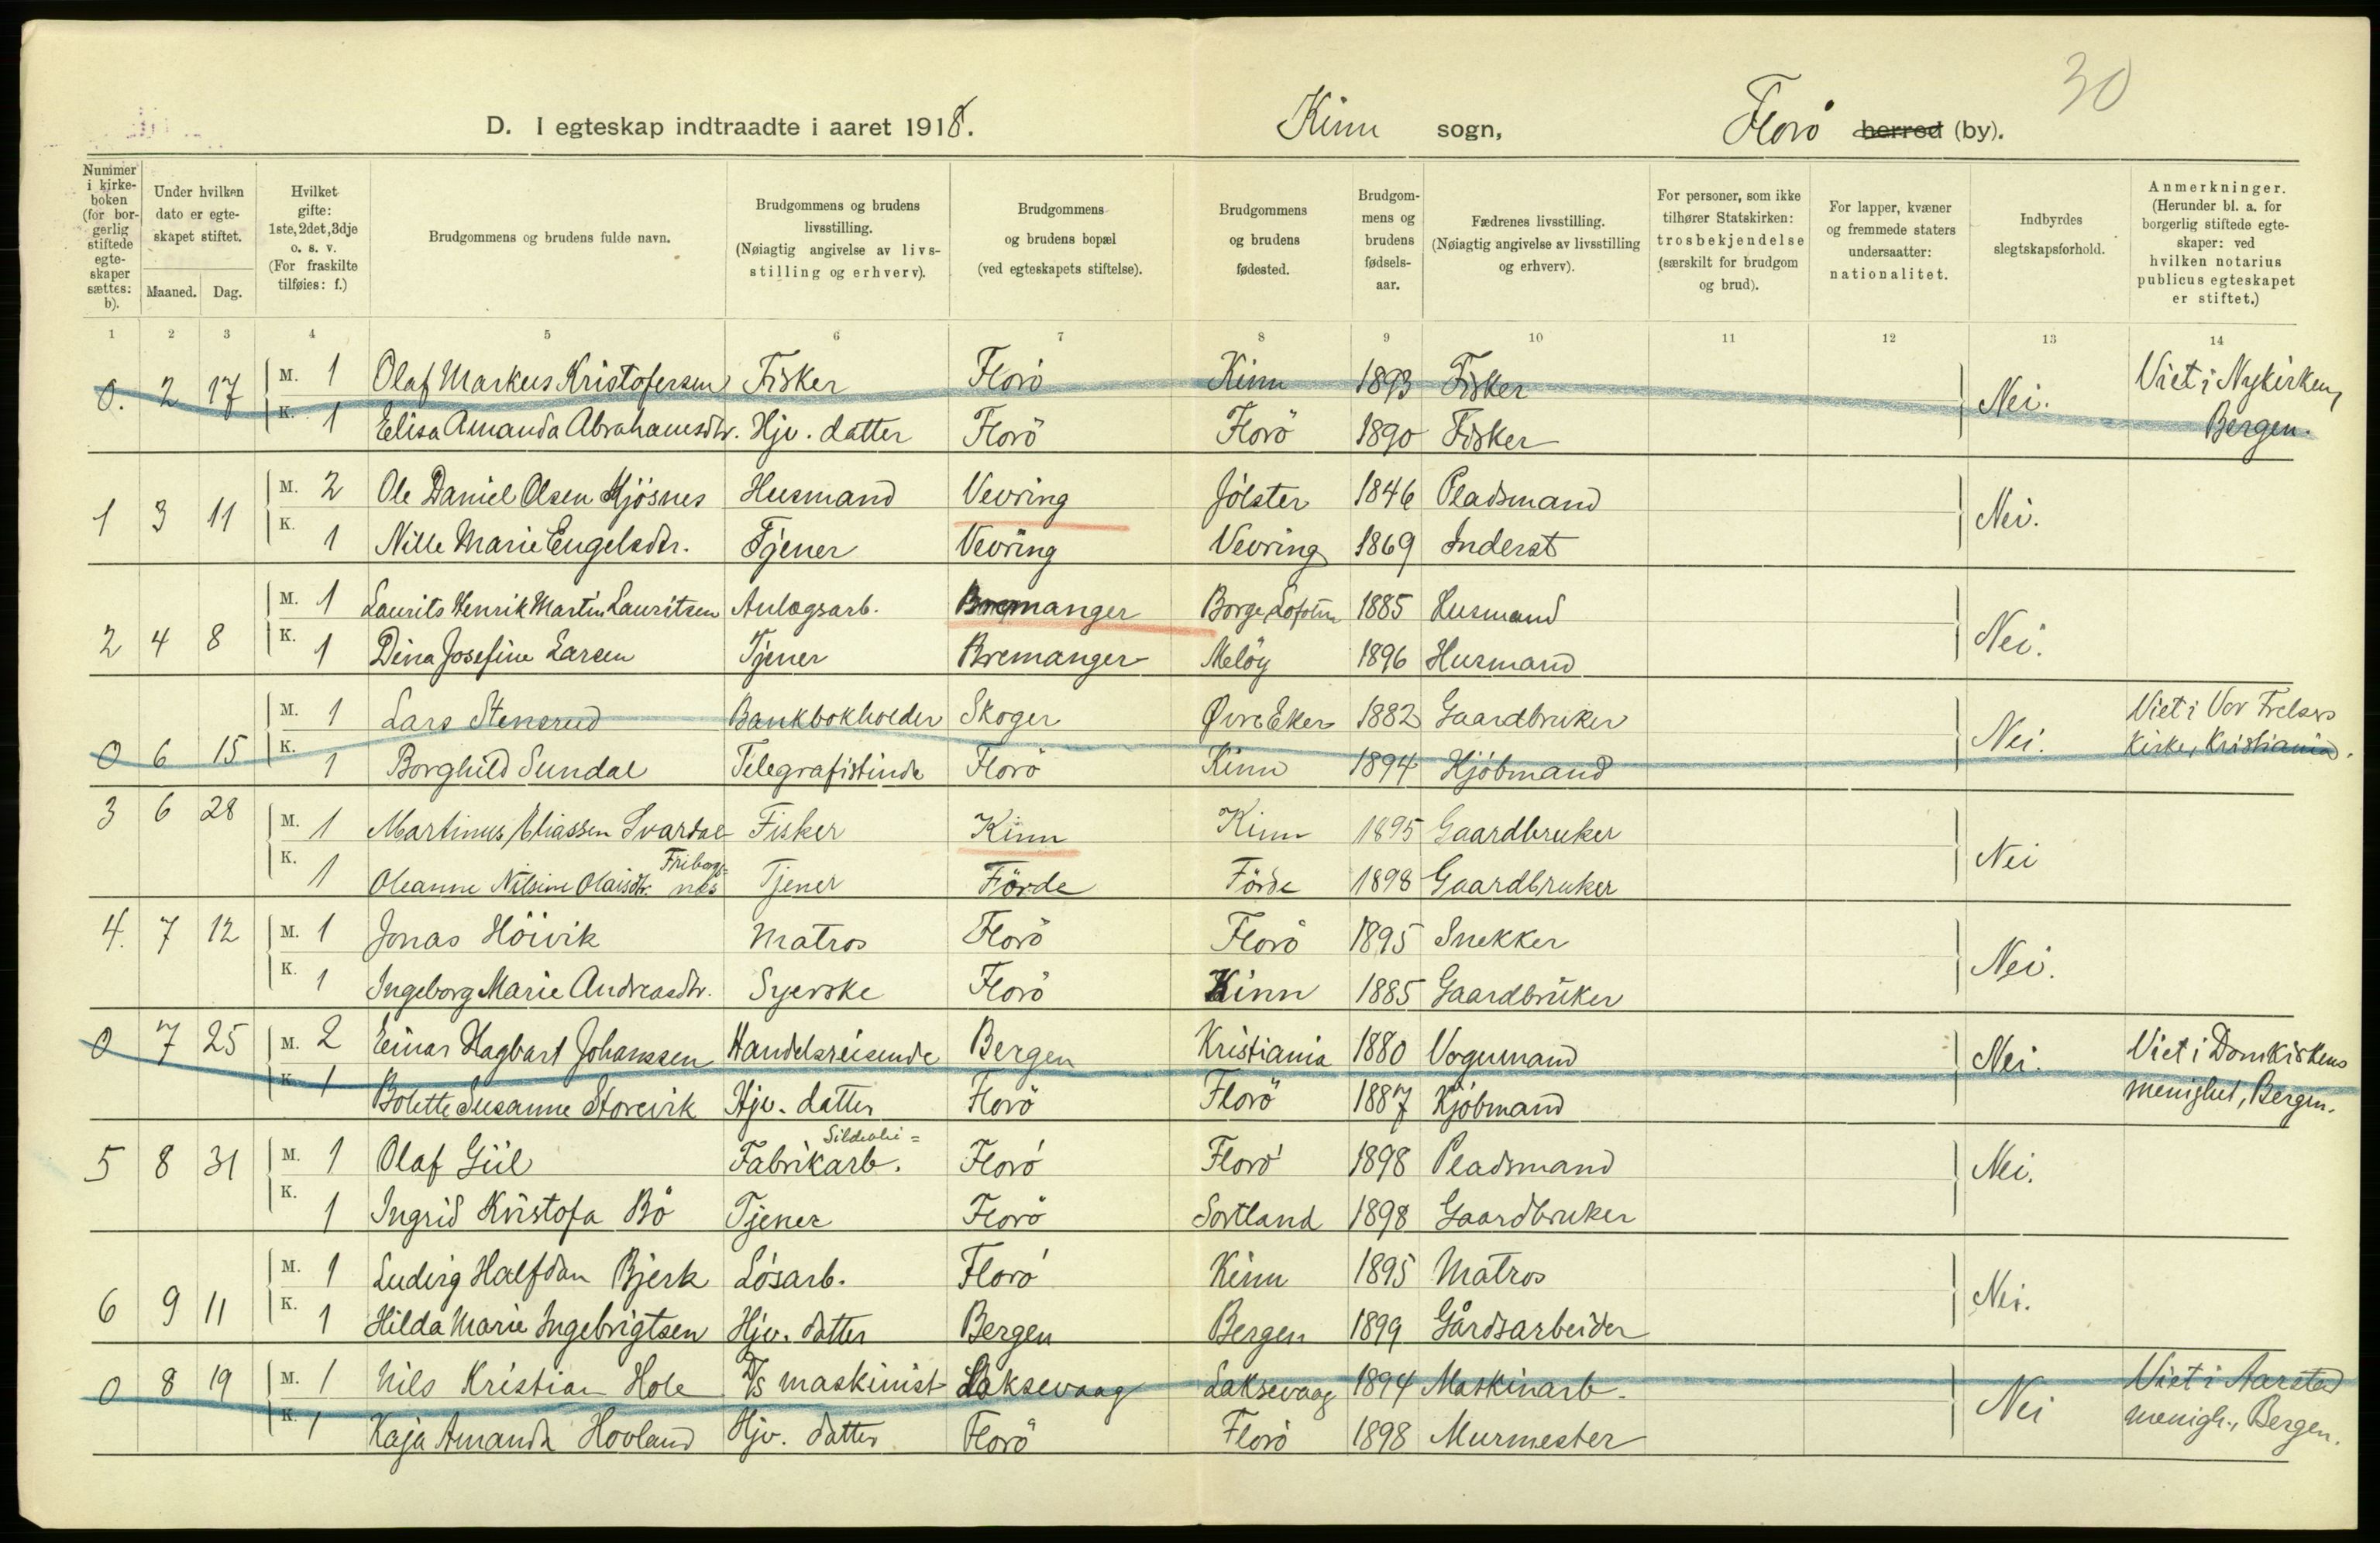 30
D. I egteskap indtraadte i aaret 1918. Kinn sogn, Florö herred (by).
Nummer i kirkeboken (for borgerlig stiftede egteskaper sættes: b).
Under hvilken dato er egteskapet stiftet.
Maaned. Dag.
Hvilket gifte: 1ste, 2det, 3dje o. s. v. (For fraskilte tilføies: f.)
Brudgommens og brudens fulde navn.
Brudgommens og brudens livsstilling. (Nøiagtig angivelse av livsstilling og erhverv).
Brudgommens og brudens bopæl (ved egteskapets stiftelse).
Brudgommens og brudens fødested.
Brudgommens og brudens fødselsaar.
Fædrenes livsstilling. (Nøiagtig angivelse av livsstilling og erhverv).
For personer, som ikke tilhører Statskirken: trosbekjendelse (særskilt for brudgom og brud).
For lapper, kvæner og fremmede staters undersaatter: nationalitet.
Indbyrdes slegtskapsforhold.
Anmerkninger. (Herunder bl. a. for borgerlig stiftede egteskaper: ved hvilken notarius publicus egteskapet er stiftet.)
1 2 3 4 5 6 7 8 9 10 11 12 13 14
0. 2 17 M. 1 Olaf Markus Kristofersen Fisker Florö Kinn 1893 Fisker Nei. Viet i Nykirken,
K. 1 Elisa Amanda Abrahamsdtr. Hjv. datter Florö Florö 1890 Fisker Bergen.
1 3 11 M. 2 Ole Daniel Olsen Hjösnes Husmand Vevring Jölster 1846 Pladsmand Nei.
K. 1 Nille Marie Engelsdtr. Tjener Vevring Vevring 1869 Inderst
2 4 8 M. 1 Laurits Henrik Martin Lauritsen Anlægsarb. Bremanger Borge Lofoten 1885 Husmand Nei.
K. 1 Dina Josefine Larsen Tjener Bremanger Melöy 1896 Husmand
0 6 15 M. 1 Lars Stensrud Bankbokholder Skoger Øvre Eker 1882 Gaardbruker Nei. Viet i Vor Frelsers
K. 1 Borghild Sundal Telegrafistinde Florö Kinn 1894 Kjöbmand Kirke, Kristiania.
3 6 28 M. 1 Martinus Eliassen Svardal Fisker Kinn Kinn 1895 Gaardbruker Nei
K. 1 Oleanne Nilsine Olaisdtr. Friborgs=nes Tjener Förde Förde 1898 Gaardbruker
4. 7 12 M. 1 Jonas Höivik Matros Florö Florö 1895 Snekker Nei.
K. 1 Ingeborg Marie Andreasdtr. Syerske Florö Kinn 1885 Gaardbruker
0 7 25 M. 2 Einar Hagbart Johanssen Handelsreisende Bergen Kristiania 1880 Vognmand Nei. Viet i Domkirkens
K. 1 Bolette Susanne Storevik Hjv. datter Florö Florö 1887 Kjöbmand menighet, Bergen.
5 8 31 M. 1 Olaf Gül Sildeolie=Fabrikarb. Florö Florö 1898 Pladsmand Nei.
K. 1 Ingrid Kristofa Bö Tjener Florö Sortland 1898 Gaardbruker
6 9 11 M. 1 Ludvig Halfdan Bjerk Lösarb. Florö Kinn 1895 Matros Nei.
K. 1 Hilda Marie Ingebrigtsen Hjv. datter Bergen Bergen 1899 Gårdsarbeider
0 8 19 M. 1 Nils Kristian Hole D/s maskinist Laksevaag Laksevaag 1894 Maskinarb. Nei Viet i Aarstad
K. 1 Kaja Amanda Hovland Hjv. datter Florö Florö 1898 Murmester menigh., Bergen.